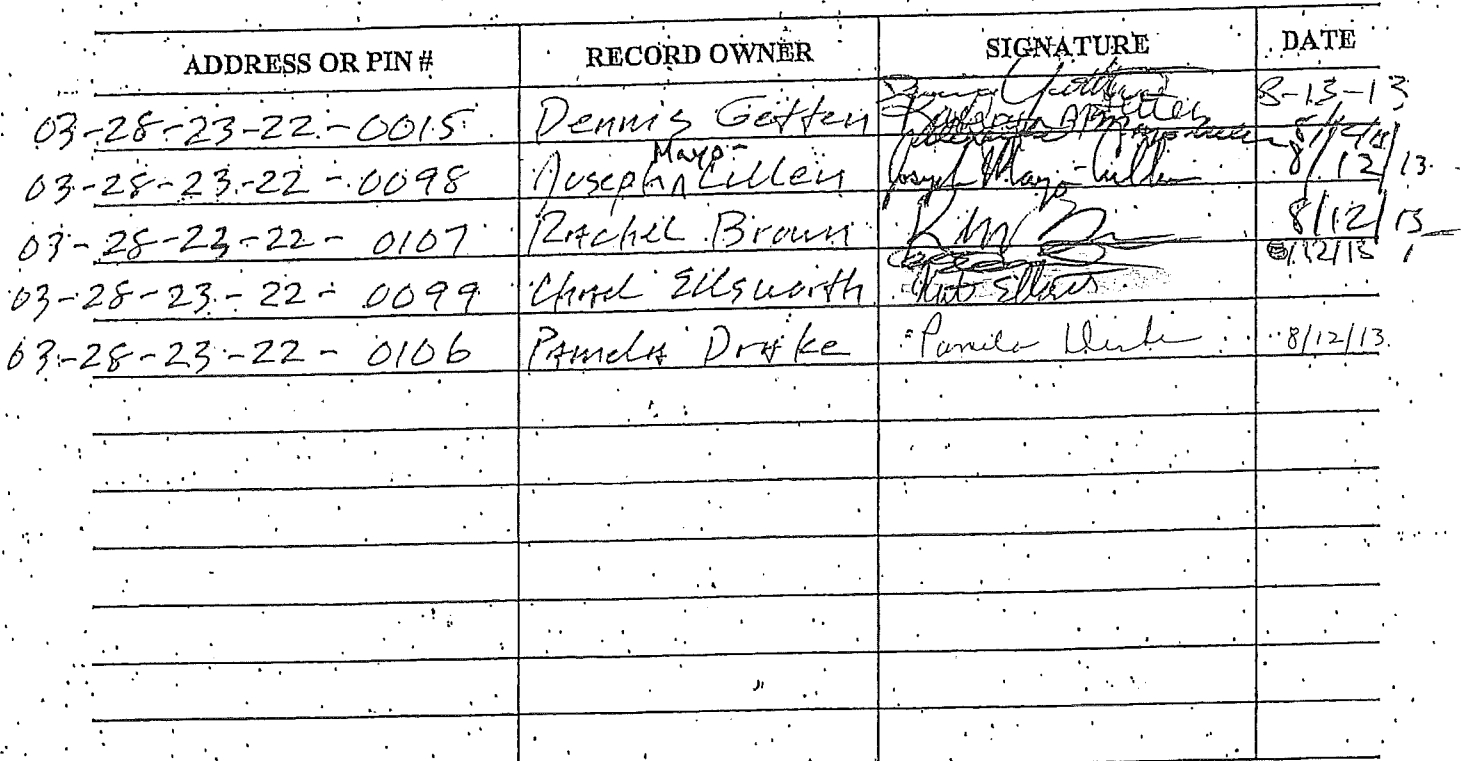 ADDRESS OR PIN # RECORD OWNER SIGNATURE DATE
03-28-23-22-0015 Dennis Getten 8-13-13
8/12/13
03-28-23-22-0098 Joseph Mayo-Cullen Joseph Mayo-Cullen 8/12/13
03-28-23-22-0107 Rachel Brown 8/12/13
8/12/13
03-28-23-22-0099 Chad Ellsworth
03-28-23-22-0106 Pamela Drake Pamela 8/12/13